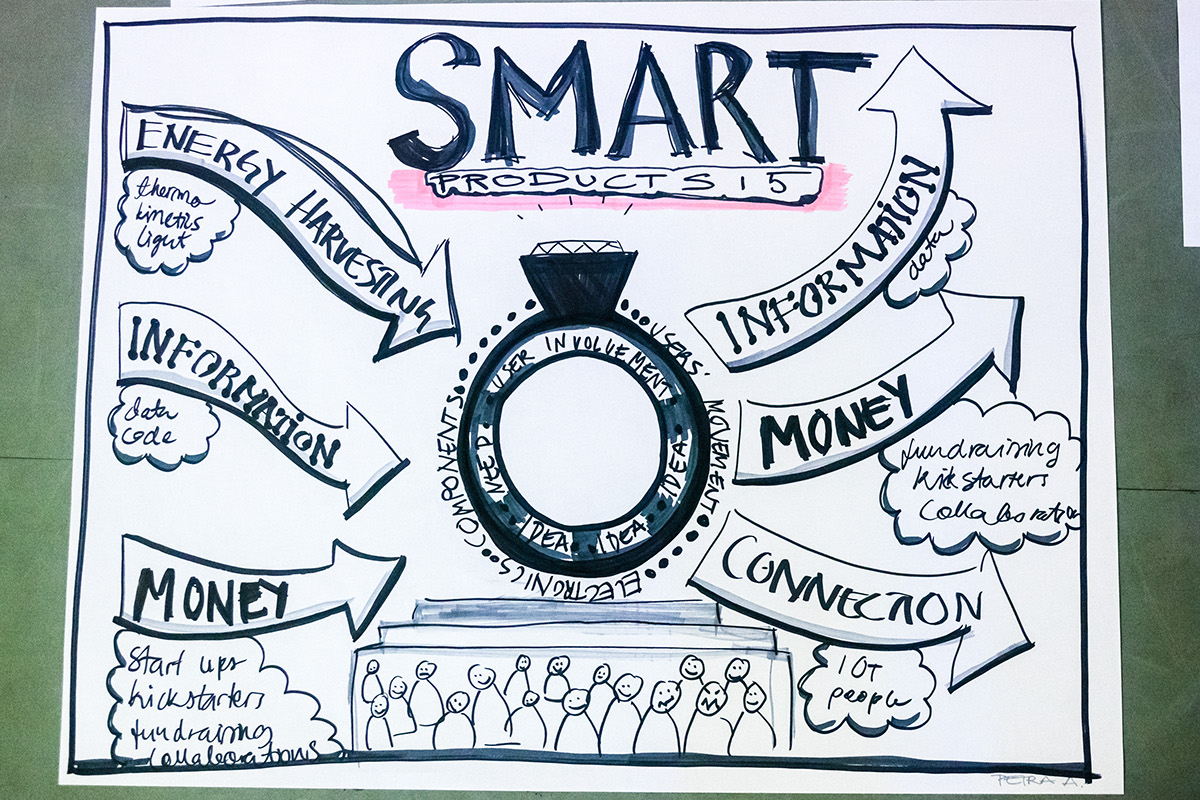 SMART
PRODUCTS 15
ENERGY HARVESTING
thermo
kinetics
light
INFORMATION
data
code
MONEY
start ups
kickstarters
fundraising
collaborations
USER INVOLVEMENT
IDEA
IDEA
IDEA
NEED
USERS'
MOVEMENT
ELECTRONICS
COMPONENTS
INFORMATION
data
MONEY
fundraising
kickstarters
collaboration
CONNECTION
IOT
people
PETRA A.